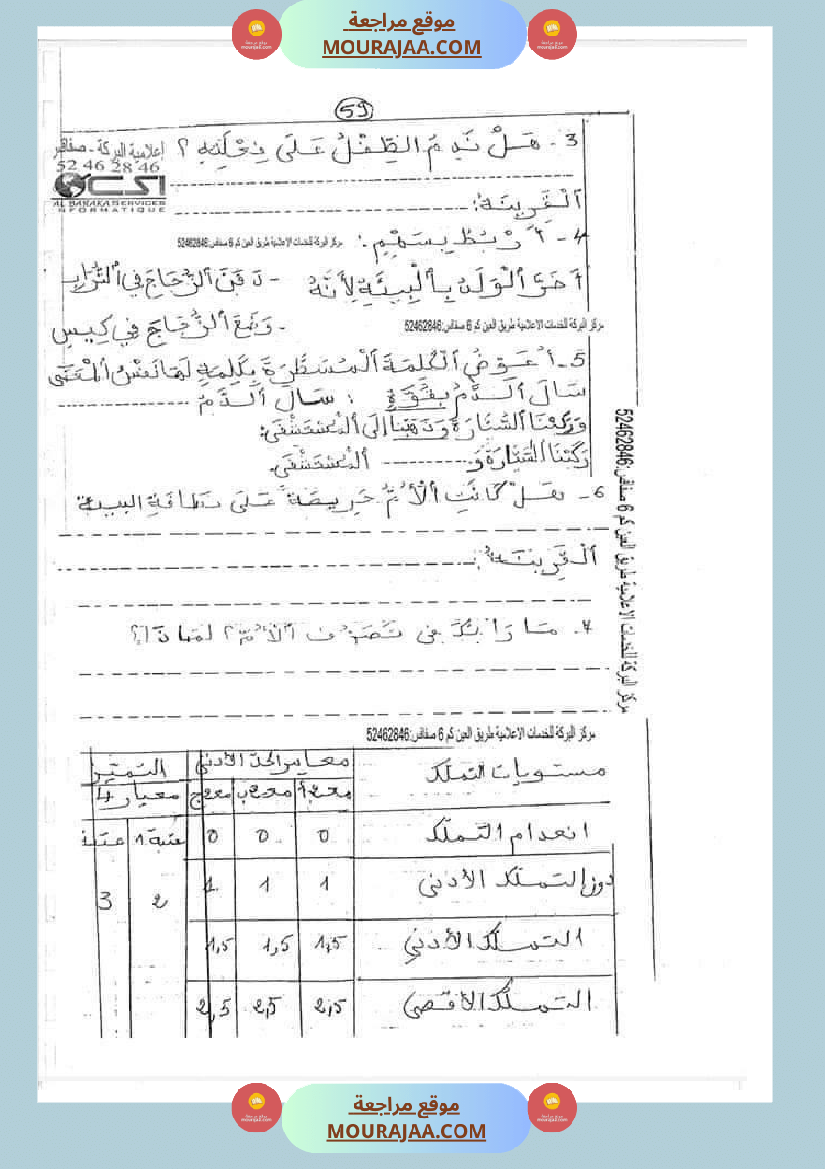 موقع مراجعة
MOURAJAA.COM
59
3- هَلْ نَدِمَ الطِّفْلُ عَلَى فِعْلَتِهِ ؟
إعلامية البركة - صفاقس
52 46 28 46
CSI
AL BARAKA SERVICES
INFORMATIQUE
اَلْقَرِينَةُ:
4- أَرْبُطُ بِسَهْمٍ:
مركز البركة للخدمات الاعلامية طريق العين كم 6 صفاقس:52462846
أَضَرَّ اَلْوَلَدُ بِالْبِيئَةِ لِأَنَّهُ - دَفَنَ اَلزُّجَاجَ فِي اُلتُّرَابِ
- وَضَعَ اَلزُّجَاجَ فِي كِيسٍ
مركز البركة للخدمات الاعلامية طريق العين كم 6 صفاقس:52462846
5- أُعَوِّضُ اَلْكَلِمَةَ اَلْمُسَطَّرَةَ بِكَلِمَةٍ لَهَا نَفْسُ اُلْمَعْنَى
سَالَ اَلدَّمُ بِقُوَّةٍ : سَالَ اَلدَّمُ
وَرَكِبْنَا اَلسَّيَّارَةَ وَذَهَبْنَا إِلَى اَلْمُسْتَشْفَى:
رَكِبْنَا اَلسَّيَّارَةَ وَ اَلْمُسْتَشْفَى.
6- هَلْ كَانَتِ اَلْأُمُّ حَرِيصَةً عَلَى نظافة البيئة
اَلْقَرِينَةُ:
7- مَا رَأْيُكَ فِي تَصَرُّفِ اَلْأُمِّ؟ لِمَاذَا؟
مركز البركة للخدمات الاعلامية طريق العين كم 6 صفاقس:52462846
مركز البركة للخدمات الاعلامية طريق العين كم 6 صفاقس:52462846
مستويات التملك معايير الحد الأدنى التميّز
مع1أ مع2ب مع3ج معيار 4
انعدام التملك 0 0 0 عتبة 1 عتبة
دون التملك الأدنى 1 1 1 2 3
التملك الأدنى 1,5 1,5 1,5
التملك الأقصى 2,5 2,5 2,5
موقع مراجعة
MOURAJAA.COM